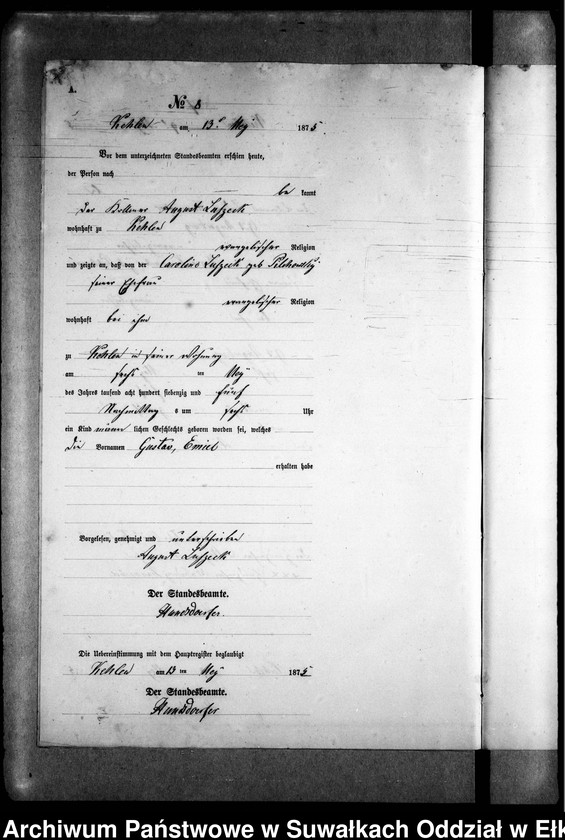 A.
№ 5
Kehlen am 13t May 1875
Vor dem unterzeichneten Standesbeamten erschien heute,
der Person nach
be kannt
der August Laszeck
wohnhaft zu Kehlen
evangelischer Religion
und zeigte an, daß von der Caroline Laszeck geb
seiner Ehefrau
evangelischer Religion
wohnhaft bei ihm
zu Kehlen in seiner Wohnung
am sechs ten May
des Jahres tausend acht hundert siebenzig und fünf
Nachmittag s um sechs Uhr
ein Kind männ lichen Geschlechts geboren worden sei, welches
die Vornamen Gustav, Emiel
erhalten habe
Vorgelesen, genehmigt und unterschrieben
August Laszeck
Der Standesbeamte.
Die Uebereinstimmung mit dem Hauptregister beglaubigt
Kehlen am 13 ten May 1875
Der Standesbeamte.
Archiwum Państwowe w Suwałkach Oddział w Ełk